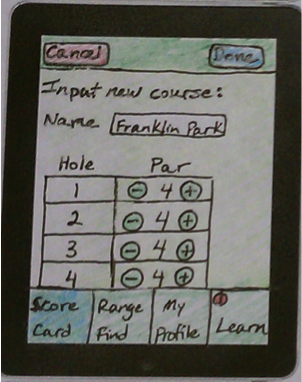 Cancel Done
Input new course:
Name Franklin Park
Hole Par
1 - 4 +
2 - 4 +
3 - 4 +
4 - 4 +
Score Card
Range Find
My Profile
Learn